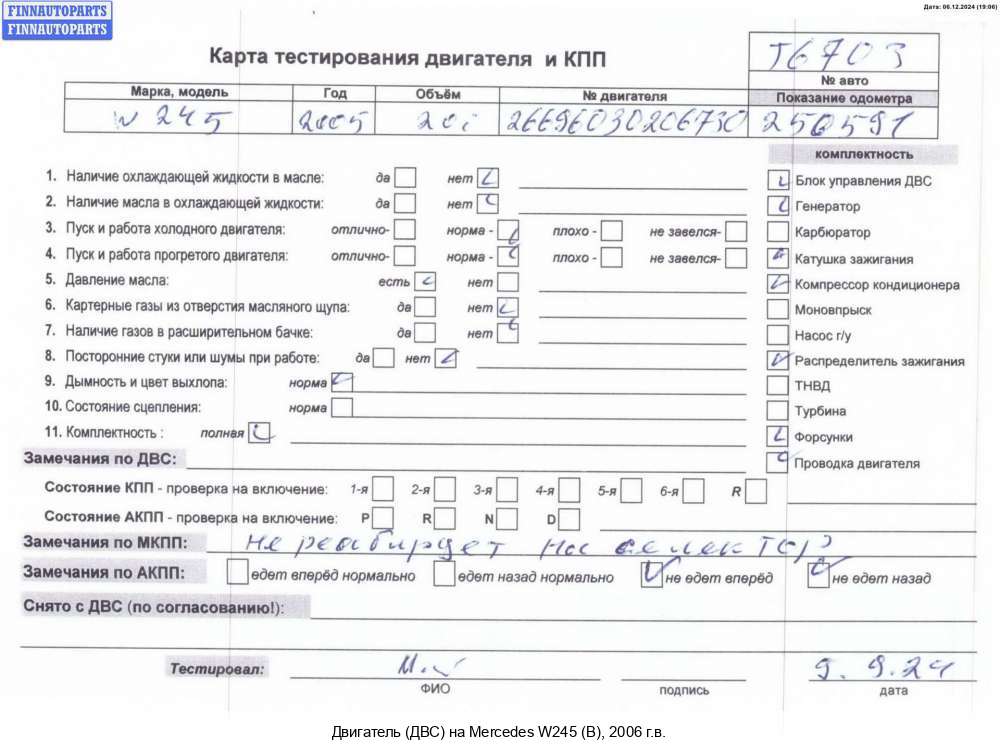 FINNAUTOPARTS
FINNAUTOPARTS
Дата: 06.12.2024 (19:06)
Карта тестирования двигателя и КПП
J6703
№ авто
Марка, модель Год Объём № двигателя Показание одометра
w 245 2005 20i 26696030206730 250591
комплектность
1. Наличие охлаждающей жидкости в масле: да нет
Блок управления ДВС
2. Наличие масла в охлаждающей жидкости: да нет
Генератор
3. Пуск и работа холодного двигателя: отлично- норма - плохо - не завелся-
Карбюратор
4. Пуск и работа прогретого двигателя: отлично- норма - плохо - не завелся-
Катушка зажигания
5. Давление масла: есть нет
Компрессор кондиционера
6. Картерные газы из отверстия масляного щупа: да нет
Моновпрыск
7. Наличие газов в расширительном бачке: да нет
Насос г/у
8. Посторонние стуки или шумы при работе: да нет
Распределитель зажигания
9. Дымность и цвет выхлопа: норма
ТНВД
10. Состояние сцепления: норма
Турбина
11. Комплектность : полная
Форсунки
Замечания по ДВС:
Проводка двигателя
Состояние КПП - проверка на включение: 1-я 2-я 3-я 4-я 5-я 6-я R
Состояние АКПП - проверка на включение: P R N D
Замечания по МКПП: не реагирует на селектор
Замечания по АКПП: едет вперёд нормально едет назад нормально не едет вперёд не едет назад
Снято с ДВС (по согласованию!):
Тестировал: 9.9.24
ФИО подпись дата
Двигатель (ДВС) на Mercedes W245 (B), 2006 г.в.